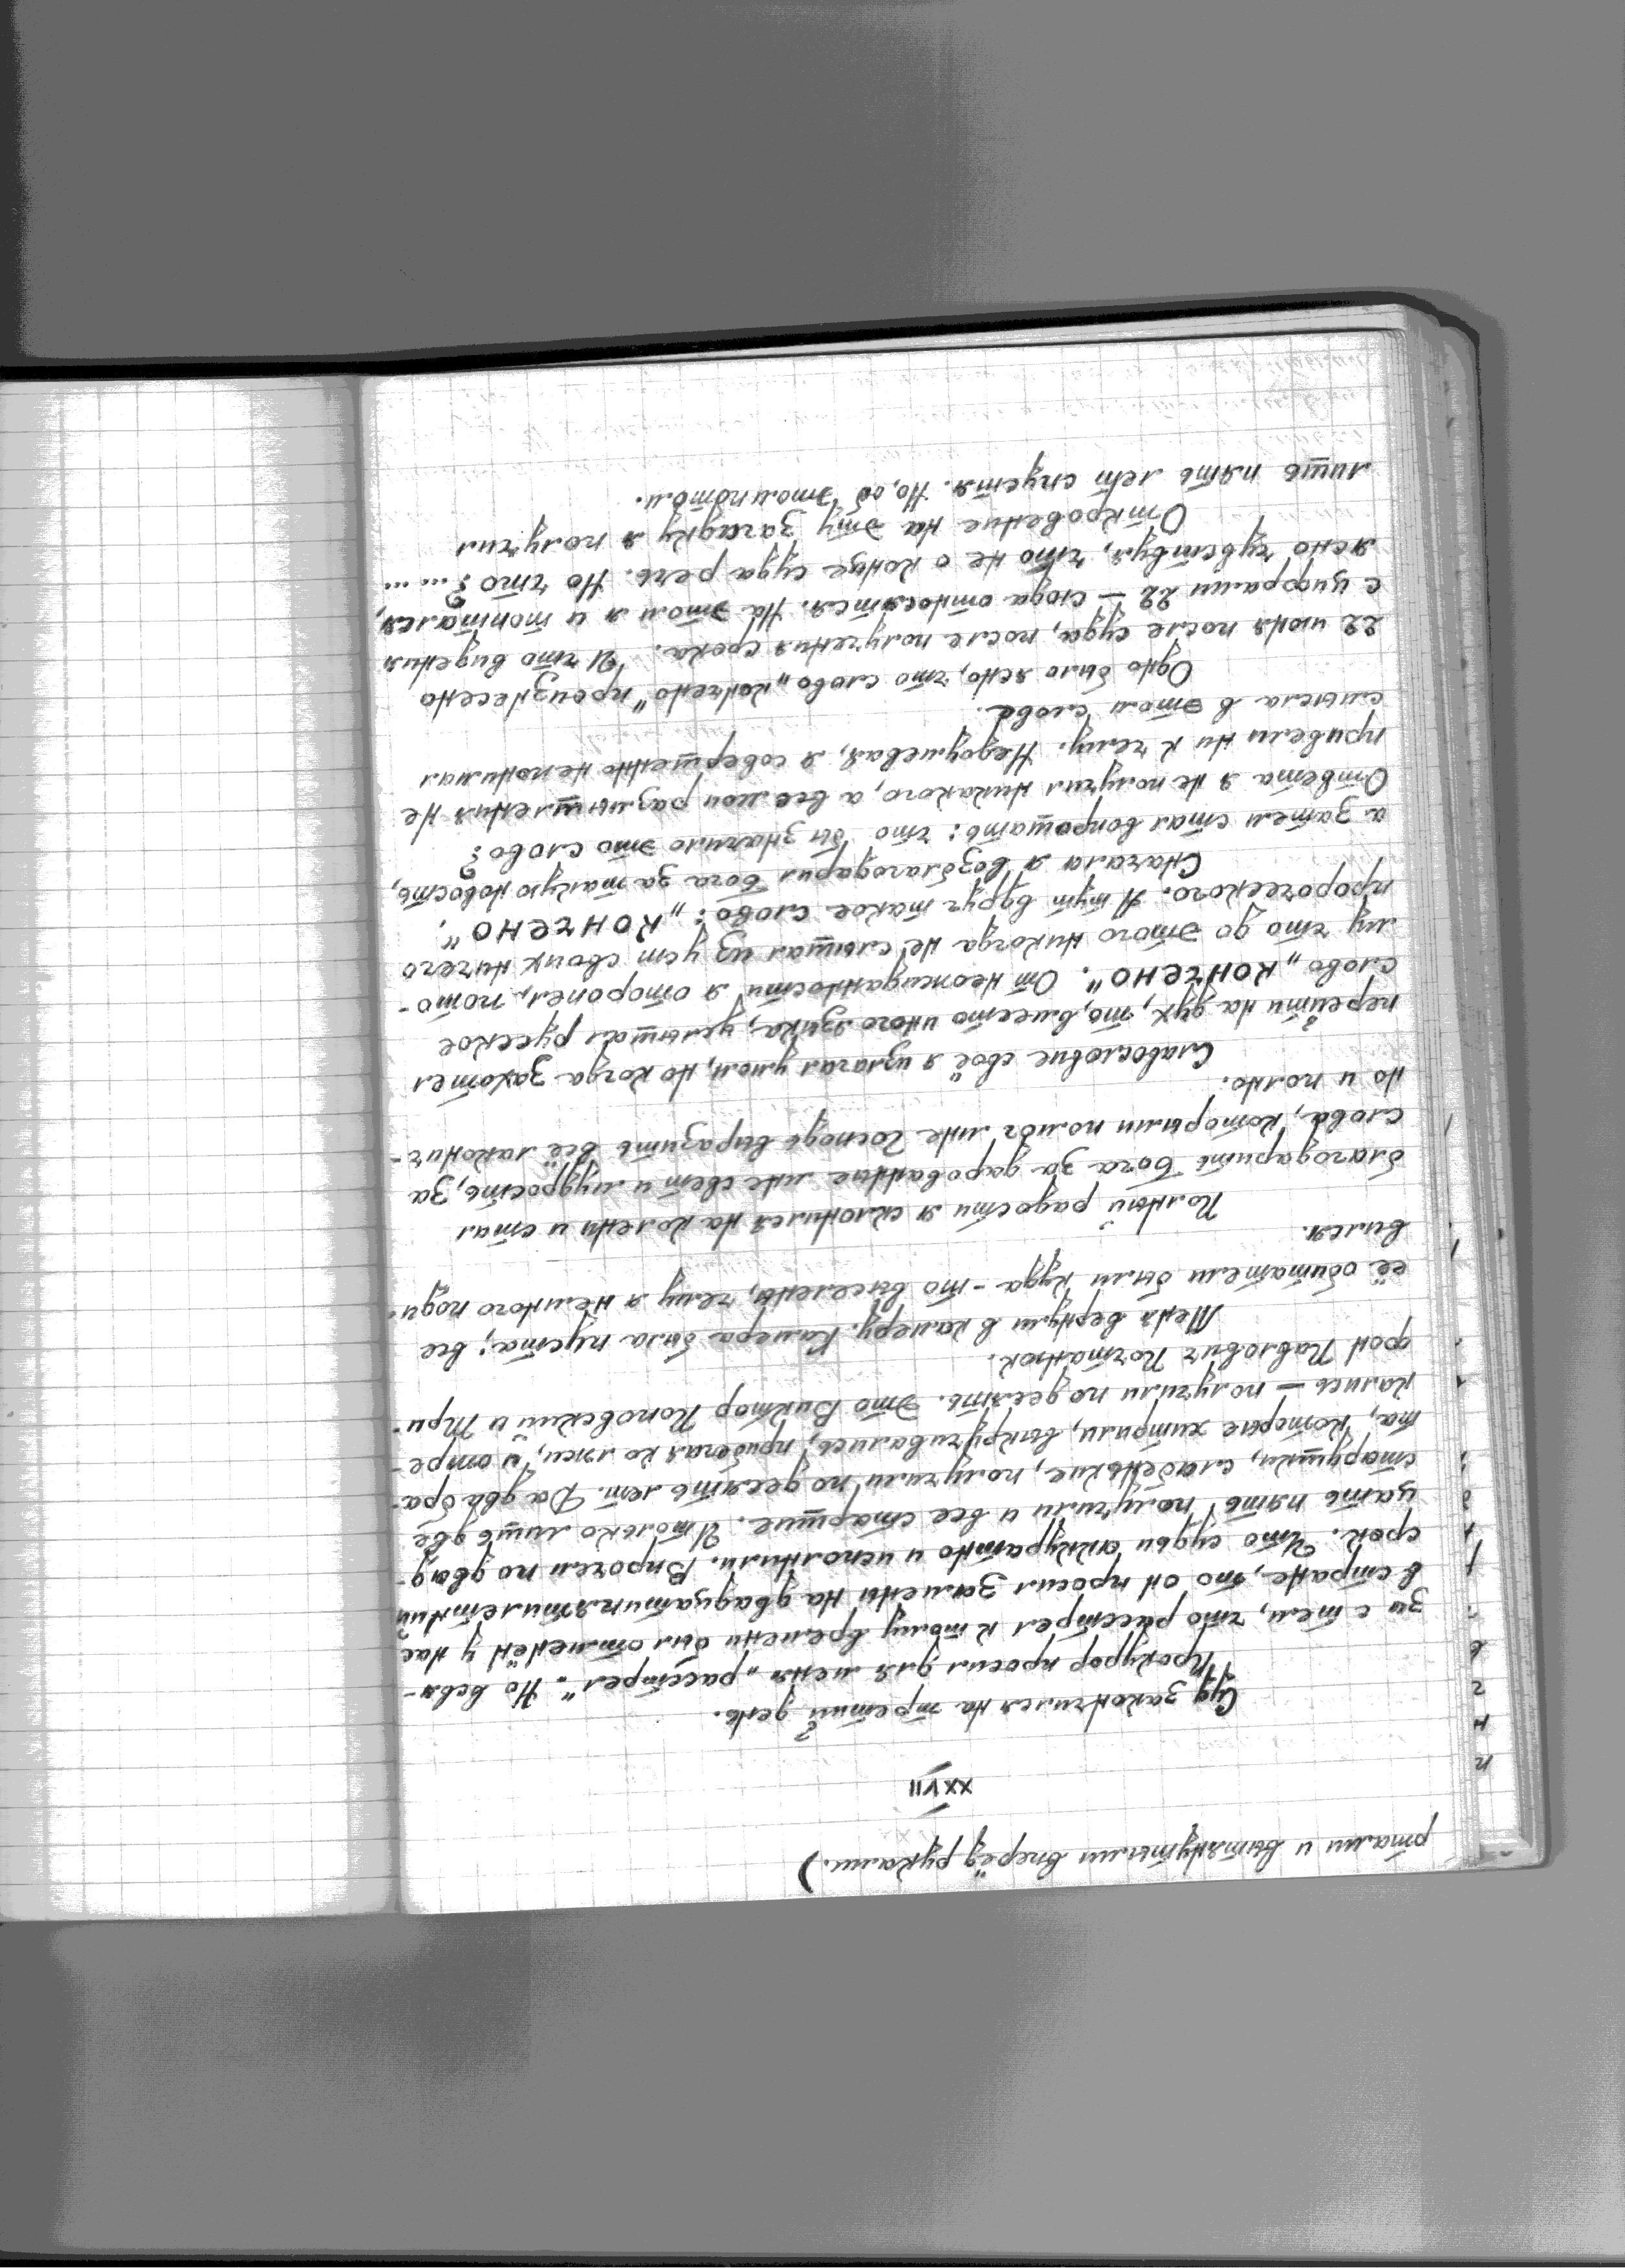 ртами и вытянутыми вперёд руками.)
XXVII
Суд закончился на третий день.
Прокурор просил для меня „расстрел“. Но всвя-
зи с тем, что расстрел к тому времени был отменён у нас
в стране, то он просил замены на двадцатипятилетний
срок. Что судьи аккуратно и исполнили. Впрочем по двад-
цать пять получили и все старшие. И только лишь две
старушки, слабенькие, получили по десять лет. Да два бра-
та, которые хитрили, выкручивались, прибегая ко лжи, и отре-
кались — получили по десять. Это Виктор Поповский и Три-
фон Павлович Почтанюк.
Меня вернули в камеру. Камера была пуста; все
её обитатели были куда-то выселены, чему я немного поди-
вился.
Полный радости я склонился на колени и стал
благодарить Бога за дарованные мне свет и мудрость, за
слова, которыми помог мне Господь выразить всё лаконич-
но и полно.
Славословие своё я излагал умом, но когда захотел
перейти на дух, то, вместо иного языка, услышал русское
слово „КОНЧЕНО“. От неожиданности я оторопел, пото-
му что до этого никогда не слышал из уст своих ничего
пророческого. А тут вдруг такое слово: „КОНЧЕНО“.
Сначала я возблагодарил Бога за такую новость,
а затем стал вопрошать: что бы значило это слово?
Ответа я не получил никакого, а все мои размышления не
привели ни к чему. Недоумевая, я совершенно не понимал
смысла в этом слове.
Одно было ясно, что слово „кончено“ произнесено
22 июня после суда, после получения срока. И что видения
с цифрами 22 — сюда относятся. На этом я и топтался,
ясно чувствуя, что не о конце суда речь. Но что? ... ...
Откровение на эту загадку я получил
лишь пять лет спустя. Но, об этом потом.